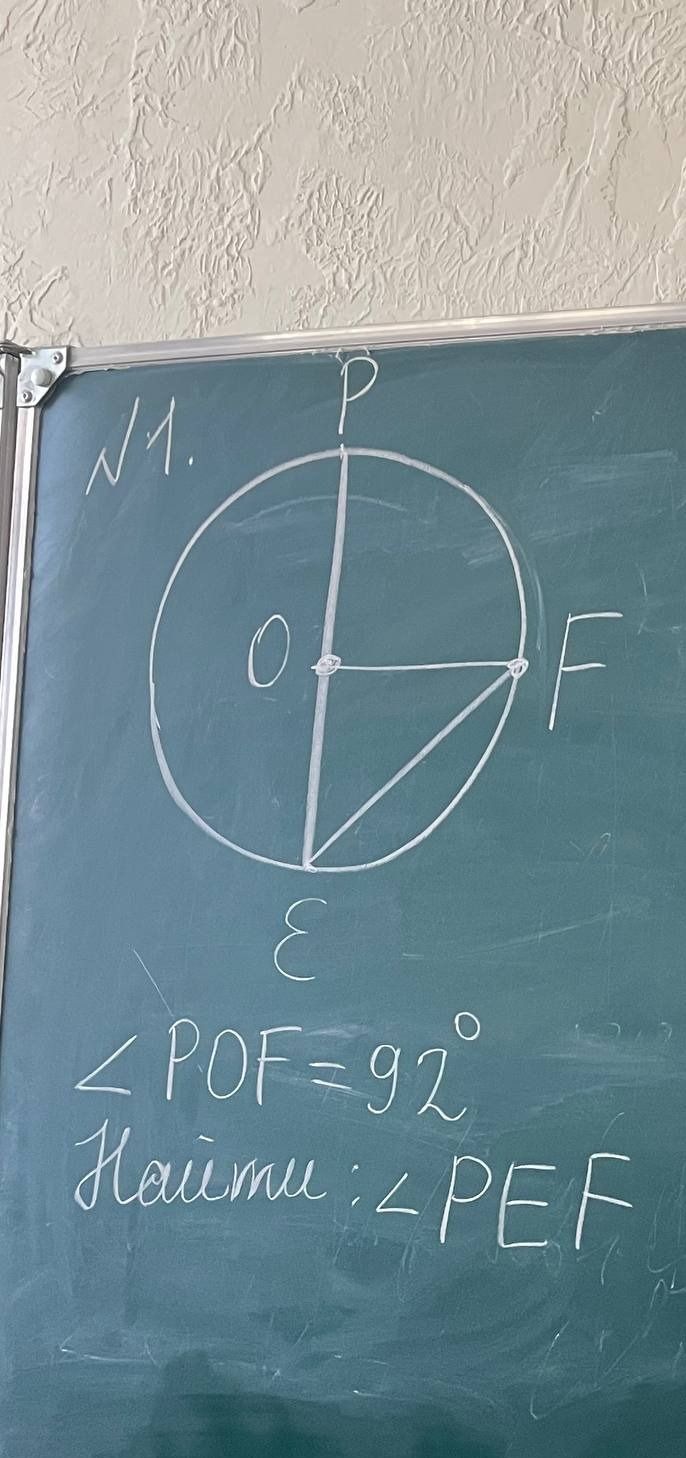 N1.
P
O
F
E
∠POF=92°
Найти: ∠PEF